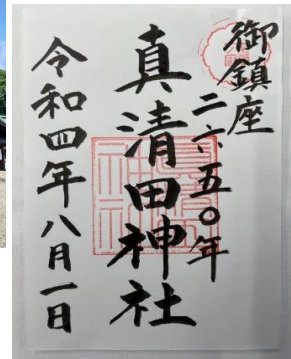 御鎮座
二六五〇年
真清田神社
令和四年八月一日